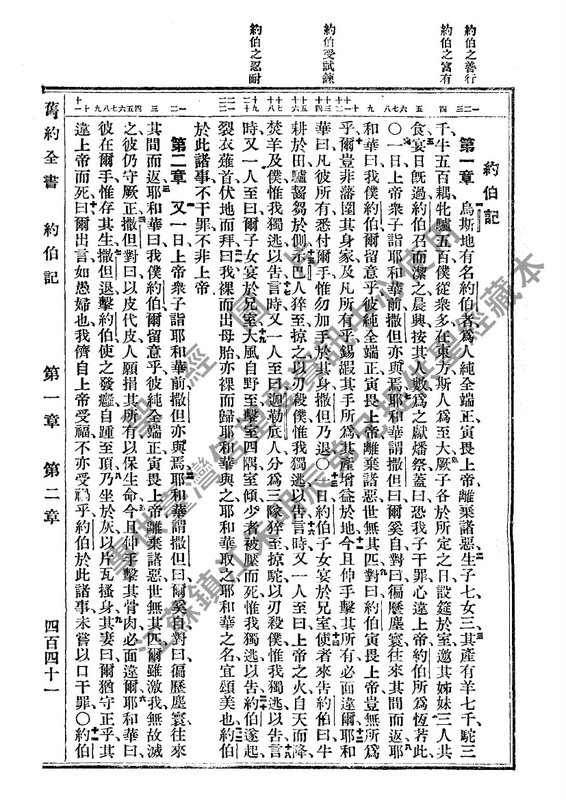 約伯之善行
約伯之富有
約伯受試鍊
約伯之忍耐
約伯記
第一章 烏斯地有名約伯者爲人純全端正寅畏上帝離棄諸惡生子七女三其產有羊七千駝三
千牛五百耦牝驢五百僕從衆多在東方斯人爲至大厥子各於所定之日設筵於室邀其姊妹三人共
食宴日旣過約伯召而潔之晨興按其人數爲之獻燔祭蓋曰恐我子干罪心違上帝約伯所爲恆若此
〇一日上帝衆子詣耶和華前撒但亦與焉耶和華謂撒但曰爾奚自對曰徧歷塵寰往來其間而返耶
和華曰我僕約伯爾留意乎彼純全端正寅畏上帝離棄諸惡世無其匹對曰約伯寅畏上帝豈無所爲
乎爾豈非藩圍其身家及凡所有乎錫嘏其手所爲其產增益於地今且伸手擊其所有必面違爾耶和
華曰凡彼所有悉付爾手惟勿加手於其身撒但乃退〇一日約伯子女宴於兄室使者來告約伯曰牛
耕於田驢齧芻於側示巴人猝至掠之以刃殺僕惟我獨逃以告言時又一人至曰上帝之火自天而降
焚羊及僕惟我獨逃以告言時又一人至曰迦勒底人分爲三隊猝至掠駝以刃殺僕惟我獨逃以告言
時又一人至曰爾子女宴於兄室大風自野至擊室四隅室傾少者被壓而死惟我獨逃以告約伯遂起
裂衣薙首伏地而拜曰我裸而出母胎亦裸而歸耶和華與之耶和華取之耶和華之名宜頌美也約伯
於此諸事不干罪不非上帝
第二章 又一日上帝衆子詣耶和華前撒但亦與焉耶和華謂撒但曰爾奚自對曰徧歷塵寰往來
其間而返耶和華曰我僕約伯爾留意乎彼純全端正寅畏上帝離棄諸惡世無其匹爾雖激我無故滅
之彼仍守厥正撒但對曰以皮代皮人願捐其所有以保生命今且伸手擊其骨肉必面違爾耶和華曰
彼在爾手惟存其生撒但退擊約伯使之發癰自踵至頂乃坐於灰以片瓦搔身其妻曰爾猶守正乎其
違上帝而死曰爾出言如愚婦也我儕自上帝受福不亦受禍乎約伯於此諸事未嘗以口干罪〇約伯
舊約全書 約伯記 第一章 第二章 四百四十一